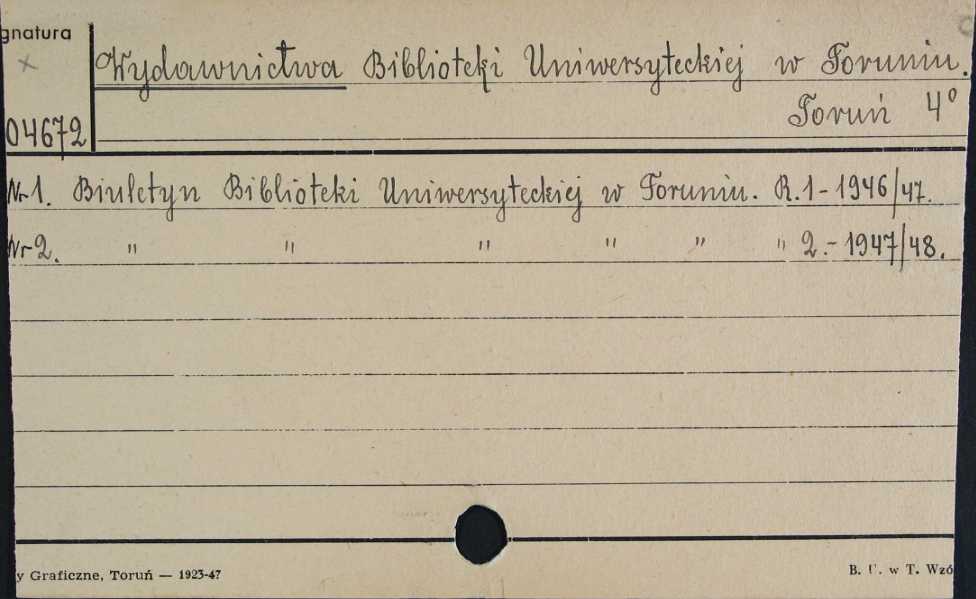 gnatura
×
Wydawnictwa Biblioteki Uniwersyteckiej w Toruniu.
Toruń 4°
04672
Nr 1. Biuletyn Biblioteki Uniwersyteckiej w Toruniu. R. 1 - 1946/47.
Nr 2. " " " " " " 2. - 1947/48.
y Graficzne, Toruń — 1923-47
B. U. w T. Wzó